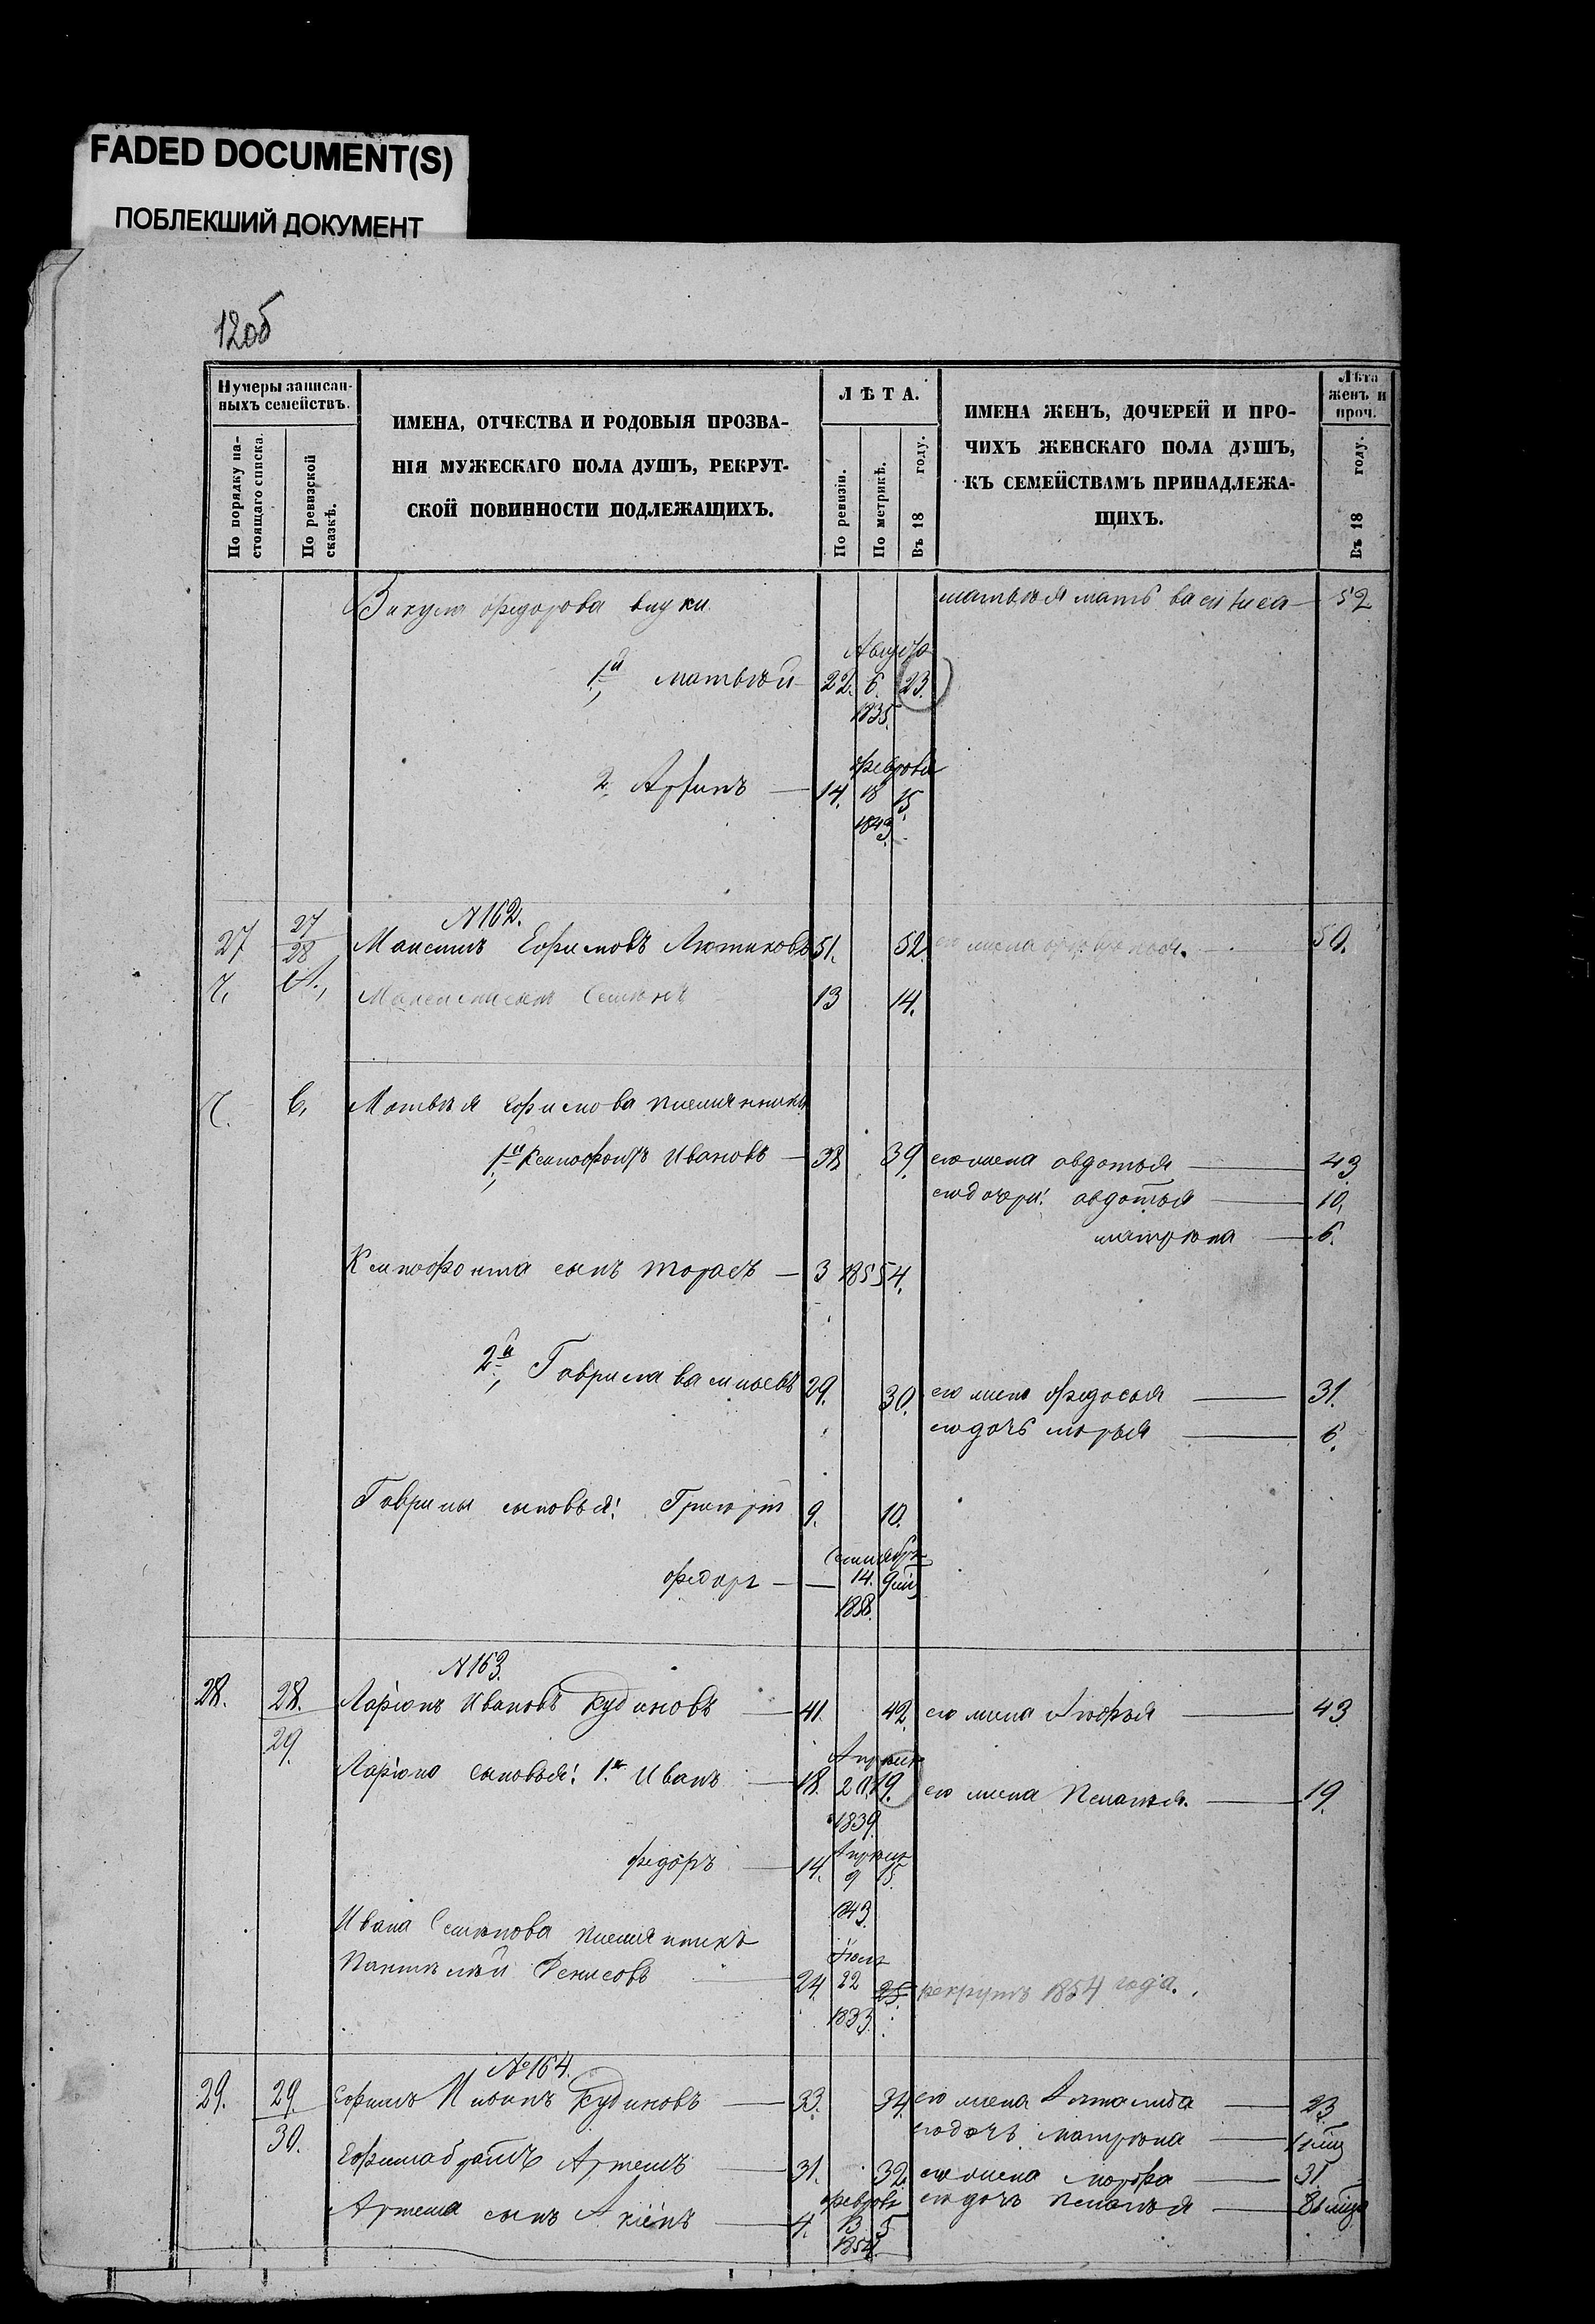 FADED DOCUMENT(S)
ПОБЛЕКШИЙ ДОКУМЕНТ
12об
Нумеры записан-
ныхъ семействъ.
По порядку на-
стоящаго списка.
По ревизской
сказкѣ.
ИМЕНА, ОТЧЕСТВА И РОДОВЫЯ ПРОЗВА-
НІЯ МУЖЕСКАГО ПОЛА ДУШЪ, РЕКРУТ-
СКОЙ ПОВИННОСТИ ПОДЛЕЖАЩИХЪ.
ЛѢТА.
По ревизіи.
По метрикѣ.
Въ 18 году.
ИМЕНА ЖЕНЪ, ДОЧЕРЕЙ И ПРО-
ЧИХЪ ЖЕНСКАГО ПОЛА ДУШЪ,
КЪ СЕМЕЙСТВАМЪ ПРИНАДЛЕЖА-
ЩИХЪ.
Лѣта
женъ и
проч.
Въ 18 году.
Викула федорова внуки матвѣя мать василиса 52
Августа
1й матвѣй 22. 6. 23.
1835.
февраля
2. 14. 18 15.
1843.
№162.
27 27/28 Максимъ Ефимовъ 51. 52. его жена 50.
Семенъ 13 14.
Матвѣя Ефимова племянники
1й Ксенофонтъ Ивановъ 38 39. его жена авдотья 43
его дочери: авдотья 10.
матрена 6.
Ксенофонта сынъ тарасъ 3 1855 4.
2й Гаврила васильевъ 29. 30. его жена федосья 31.
его дочь марья 6.
Гаврилы сыновья: Григорій 9. 10.
Сентября
федоръ 14. 9 мѣс
1858.
№163.
28. 28./29. Ларіонъ Ивановъ Кудиновъ 41. 42. его жена 43
Апреля
Ларіона сыновья: 1й Иванъ 18. 20. 19. его жена Пелагея. 19.
1839
Апреля
федоръ 14. 9 15.
1843.
Ивана Семенова племянникъ
Іюля
Пантелей Денисовъ 24. 22 25. рекрутъ 1854 года.
1833
№164.
29. 29./30. Ефимъ Кудиновъ 33. 34. его жена 23
его дочь матрена
Ефима братъ Артемъ 31. 32. его жена марфа 31
февраля его дочь пелагея
Артема сынъ 4. 13 5
1854.